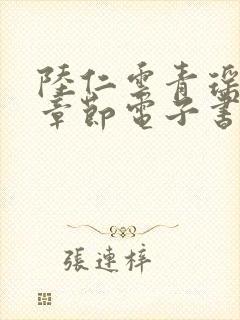 陸仁雲青瑶
章節電子書
張連梓